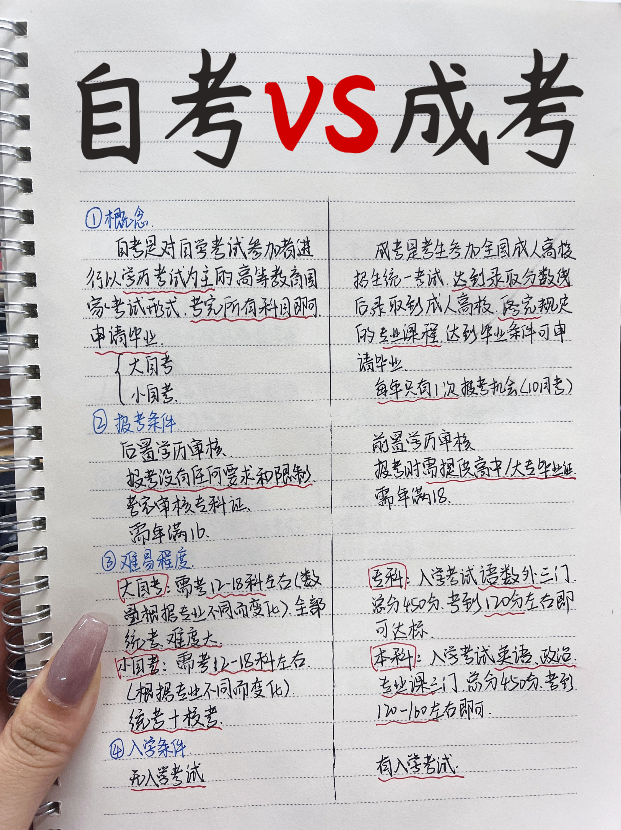 自考VS成考
①概念
自考是对自学考试参加者进
行以学历考试为主的高等教育国
家考试形式，考完所有科目即可
申请毕业
大自考
小自考
成考是考生参加全国成人高校
招生统一考试，达到录取分数线
后录取到成人高校，学完规定
的专业课程，达到毕业条件可申
请毕业
每年只有1次报考机会（10月考）
②报考条件
后置学历审核
报考没有任何要求和限制
考完审核专科证
需年满16
前置学历审核
报考时需提供高中/大专毕业证
需年满18.
③难易程度
大自考：需考12-18科左右（数
量根据专业不同而变化）全部
统考，难度大
小自考：需考12-18科左右
（根据专业不同而变化）
统考+校考
专科：入学考试语数外三门
总分450分，考到120分左右即
可达标
本科：入学考试英语、政治、
专业课三门，总分450分，考到
120-160左右即可.
④入学条件
无入学考试
有入学考试.